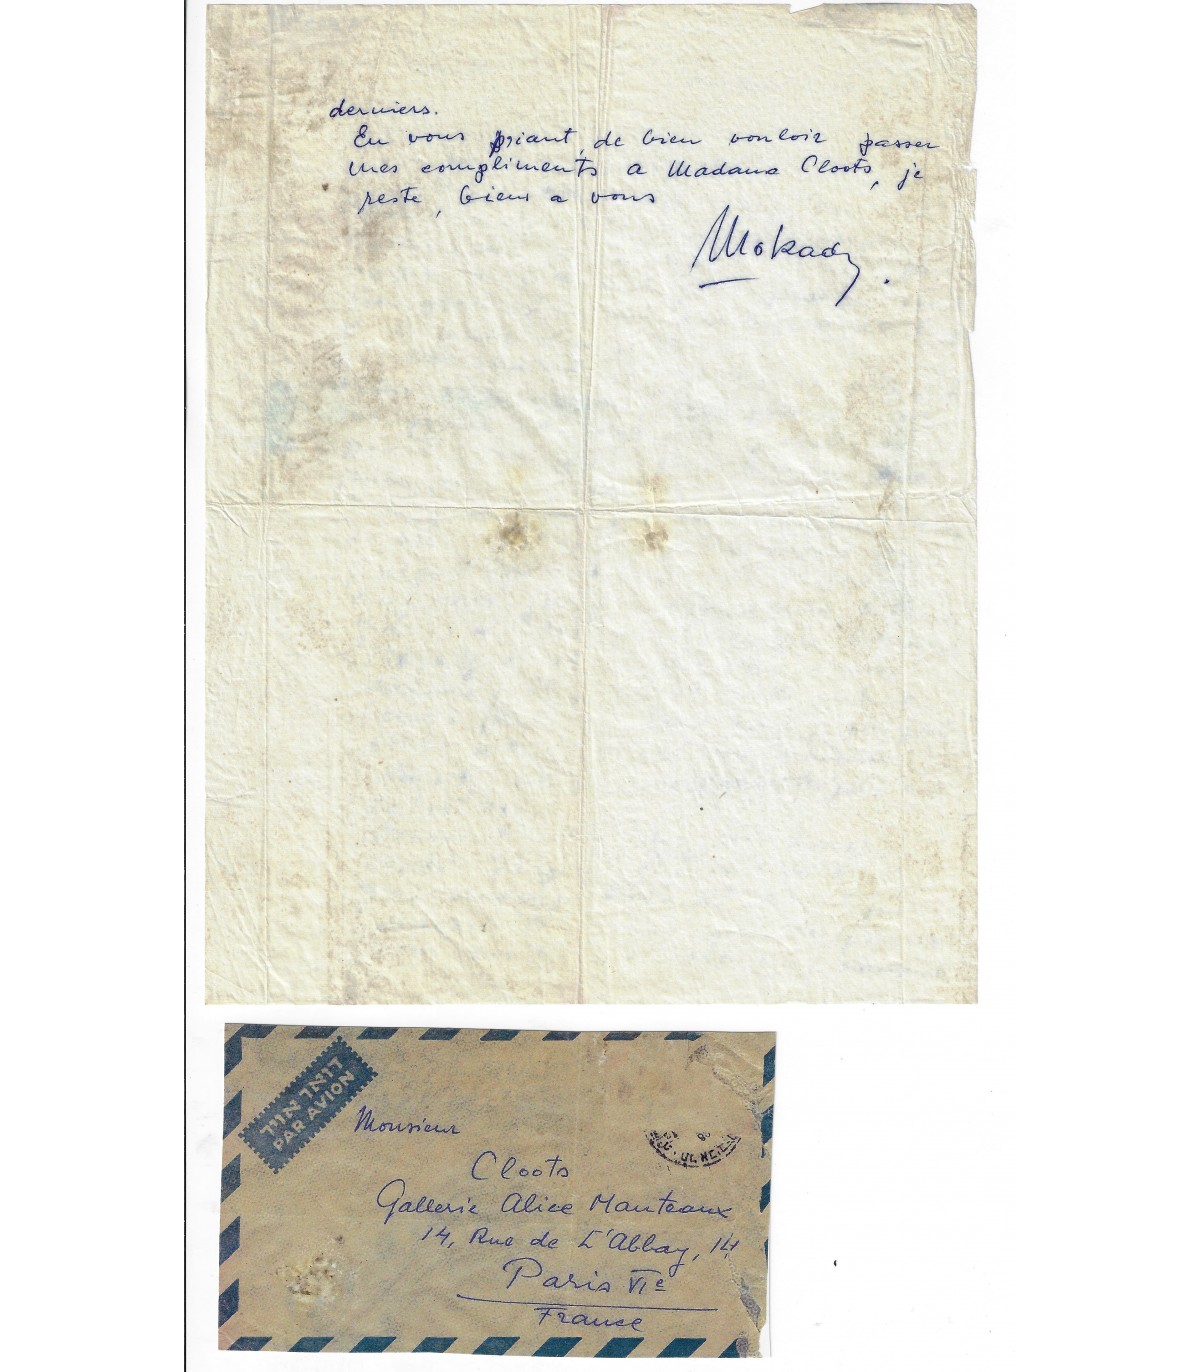 derniers.
En vous priant, de bien vouloir passer
mes compliments a Madame Cloots, je
reste, bien a vous
Mokady.
דואר אויר
PAR AVION
Monsieur
Cloots
Gallerie Alice Manteaux
14, Rue de L'Abbay, 14
Paris VIe
France